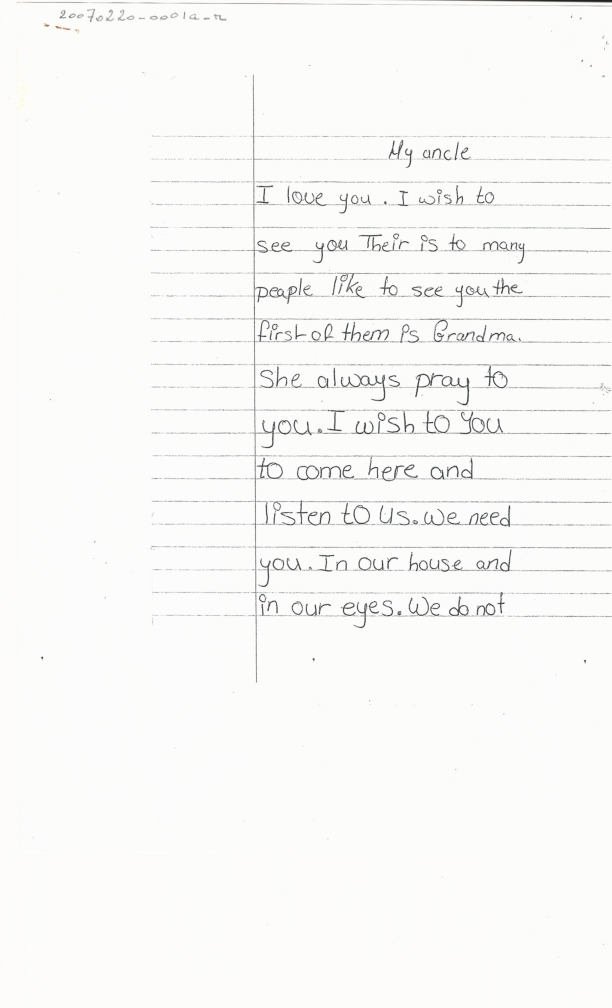 20070220-0001a-r
My ancle
I love you. I wish to
see you Their is to many
peaple like to see you the
first of them is Grandma.
She always pray to
you. I wish to You
to come here and
listen to Us. we need
you. In our house and
in our eyes. We do not